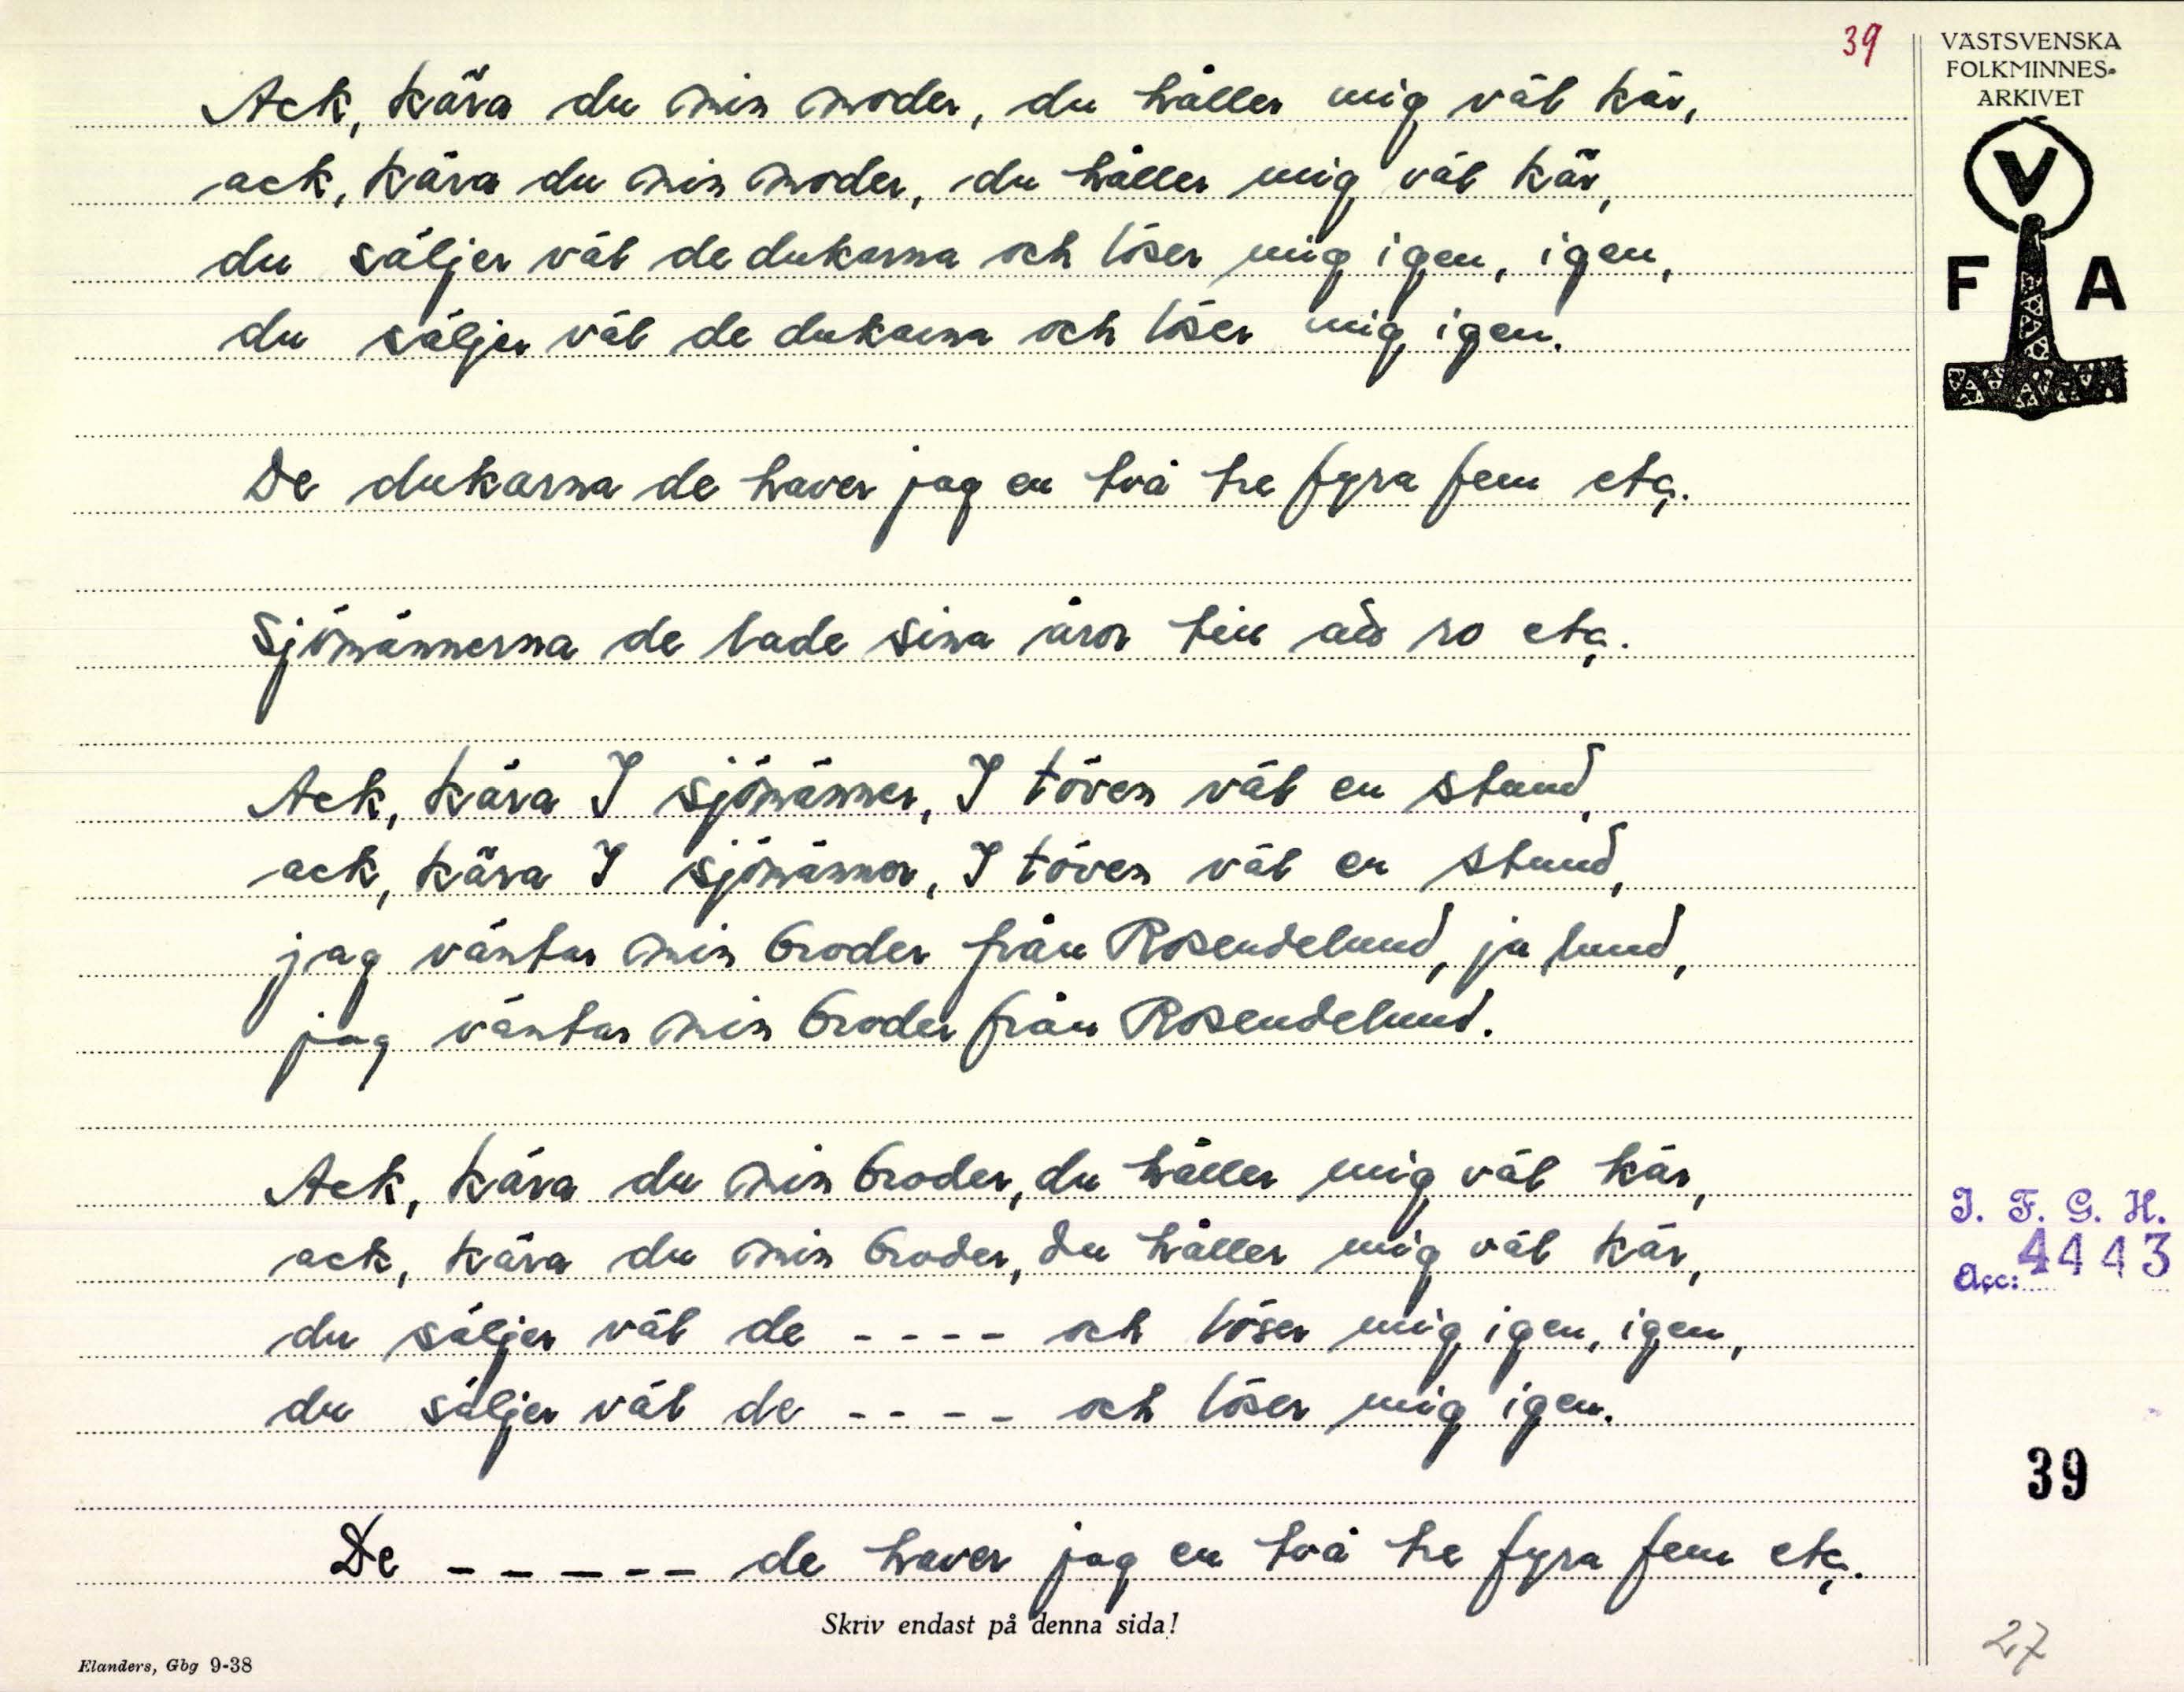 39
VÄSTSVENSKA
FOLKMINNES-
ARKIVET
V
F A
Ack, kära du min moder, du håller mig väl kär,
ack, kära du min moder, du håller mig väl kär,
du säljer väl de dukarna och löser mig igen, igen,
du säljer väl de dukarna och löser mig igen.
De dukarna de haver jag en två tre fyra fem etc.
Sjömännerna de lade sina åror till att ro etc.
Ack, kära I sjömänner, I töven väl en stund,
ack, kära I sjömänner, I töven väl en stund,
jag väntar min broder från Rosendelund, ja lund,
jag väntar min broder från Rosendelund.
Ack, kära du min broder, du håller mig väl kär,
ack, kära du min broder, du håller mig väl kär,
du säljer väl de - - - - och löser mig igen, igen,
du säljer väl de - - - - och löser mig igen.
De - - - - - de haver jag en två tre fyra fem etc.
I. F. G. H.
Acc: 4443
39
Skriv endast på denna sida!
Elanders, Gbg 9-38
27